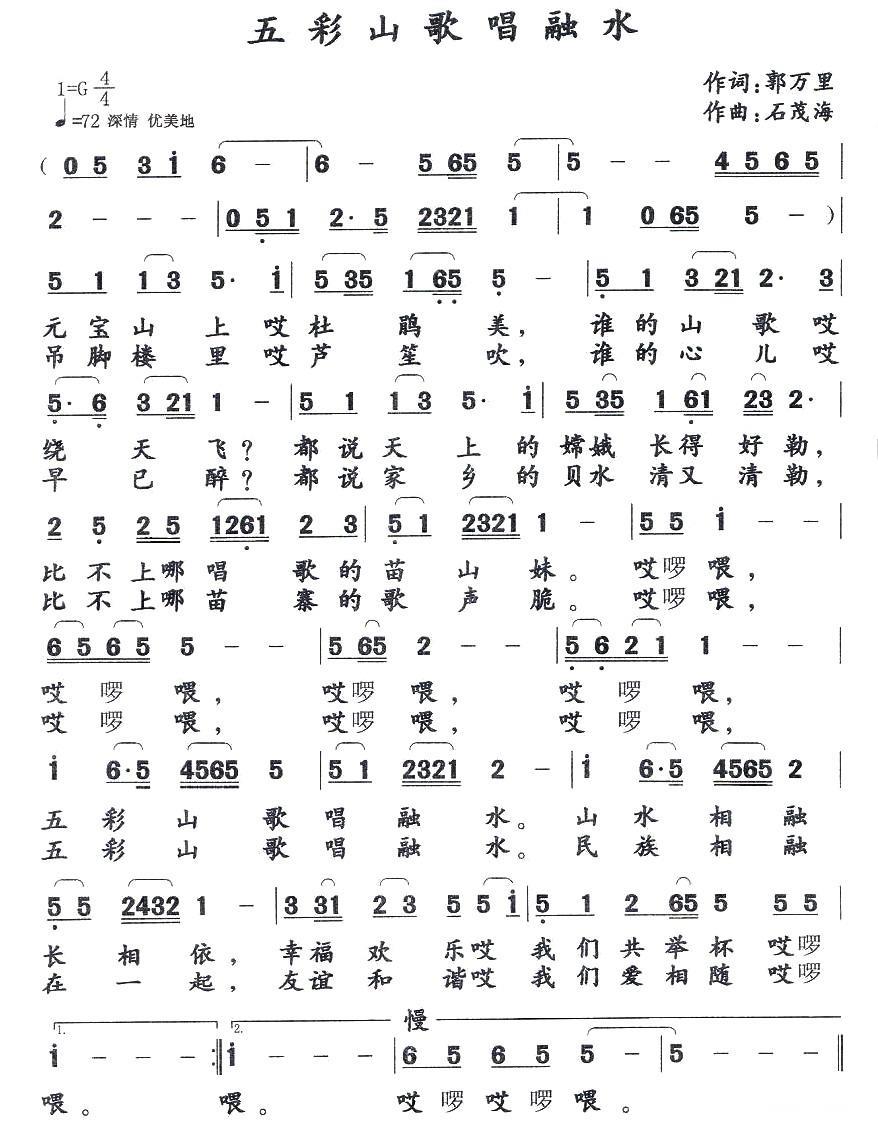 五彩山歌唱融水
1=G 4/4
作词：郭万里
♩=72 深情 优美地
作曲：石茂海
( 0 5 3 i 6 - | 6 - 5 65 5 | 5 - - 4 5 6 5 |
2 - - - | 0 5 1 2· 5 2321 1 | 1 0 65 5 - ) |
5 1 1 3 5· i | 5 35 1 65 5 - | 5 1 3 21 2· 3
元宝山上哎杜鹃美，谁的山歌哎
吊脚楼里哎芦笙吹，谁的心儿哎
5· 6 3 21 1 - | 5 1 1 3 5· i | 5 35 1 61 23 2·
绕天飞？都说天上的嫦娥长得好勒，
早已醉？都说家乡的贝水清又清勒，
2 5 2 5 1261 2 3 | 5 1 2321 1 - | 5 5 i -
比不上哪唱歌的苗山妹。哎啰喂，
比不上哪苗寨的歌声脆。哎啰喂，
6 5 6 5 5 - - | 5 65 2 - - | 5 6 2 1 1 - - |
哎啰喂，哎啰喂，哎啰喂，
哎啰喂，哎啰喂，哎啰喂，
i 6·5 4565 5 | 5 1 2321 2 - | i 6·5 4565 2
五彩山歌唱融水。山水相融
五彩山歌唱融水。民族相融
5 5 2432 1 - | 3 31 2 3 5 5 i | 5 1 2 65 5 5 5 |
长相依，幸福欢乐哎我们共举杯哎啰
在一起，友谊和谐哎我们爱相随哎啰
1. 2. 慢
i - - - :| i - - - | 6 5 6 5 5 - | 5 - - - ||
喂。喂。哎啰哎啰喂。